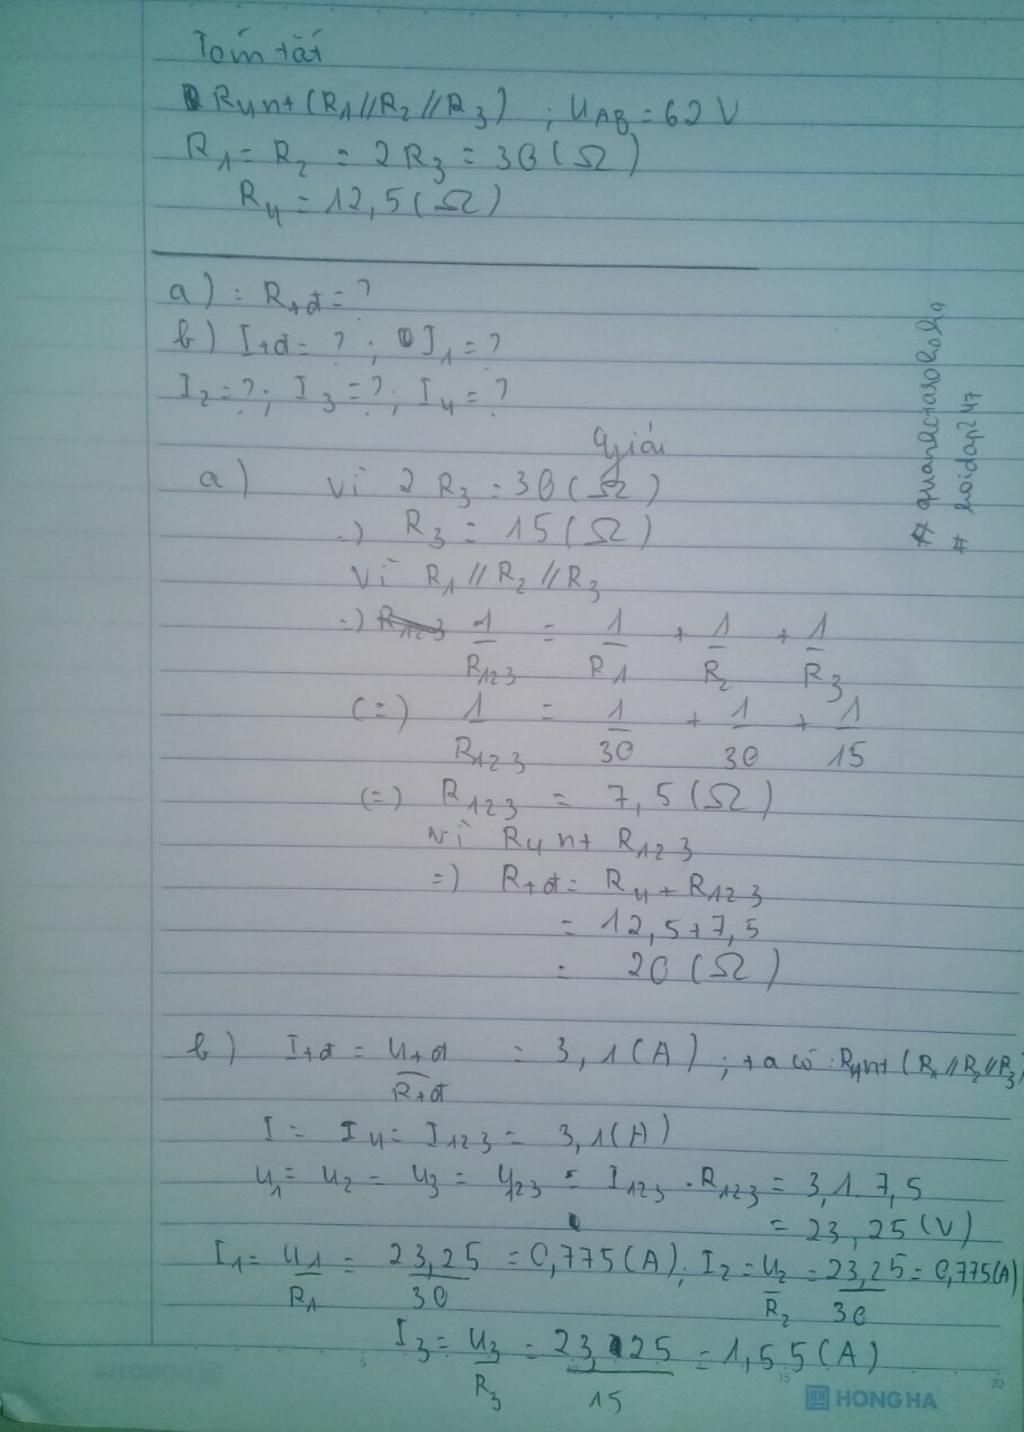 Tóm tắt
R4 nt (R1 // R2 // R3) ; UAB = 62 V
R1 = R2 = 2 R3 = 30 (Ω)
R4 = 12,5 (Ω)
a) : Rtđ = ?
b) Itđ = ? ; I1 = ?
I2 = ? ; I3 = ? ; I4 = ?
Giải
a) Vì 2 R3 = 30 (Ω)
=) R3 = 15 (Ω)
Vì R1 // R2 // R3
=) 1/R123 = 1/R1 + 1/R2 + 1/R3
(=) 1/R123 = 1/30 + 1/30 + 1/15
(=) R123 = 7,5 (Ω)
Vì R4 nt R123
=) Rtđ = R4 + R123
= 12,5 + 7,5
= 20 (Ω)
b) Itđ = Utđ/Rtđ = 3,1 (A) ; ta có : R4 nt (R1 // R2 // R3)
I = I4 = I123 = 3,1 (A)
U1 = U2 = U3 = U123 = I123 . R123 = 3,1 . 7,5
= 23,25 (V)
I1 = U1/R1 = 23,25/30 = 0,775 (A) ; I2 = U2/R2 = 23,25/30 = 0,775 (A)
I3 = U3/R3 = 23,25/15 = 1,55 (A)
# hoidap247
HONG HA